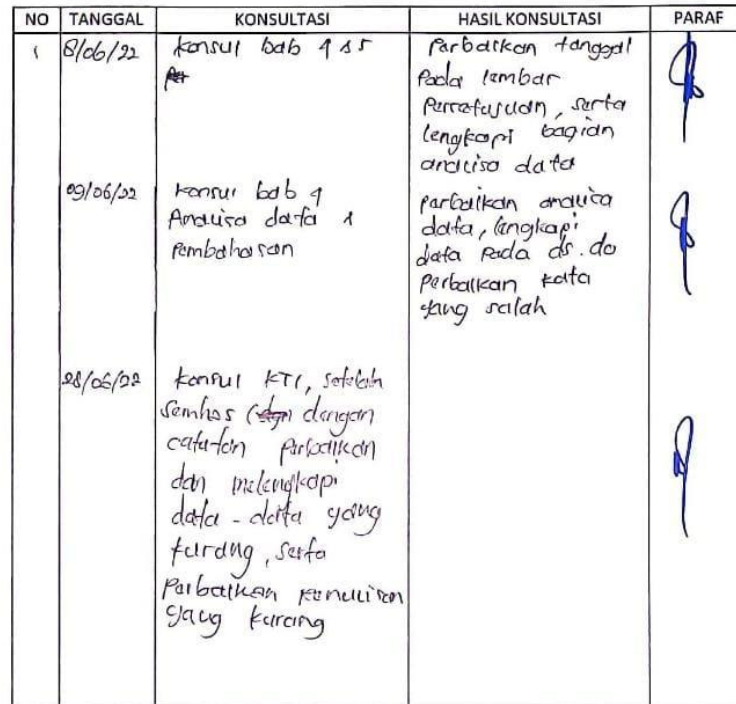 NO TANGGAL KONSULTASI HASIL KONSULTASI PARAF
1 8/06/22 konsul bab 4 & 5 Perbaikan tanggal
pada lembar
Persetujuan, serta
lengkapi bagian
analisa data
09/06/22 konsul bab 4 Perbaikan analisa
Analisa data & data, lengkapi
Pembahasan data pada ds. do
Perbaikan kata
yang salah
28/06/22 konsul KTI, setelah
semhas (dgn) dengan
catatan perbaikan
dan melengkapi
data - data yang
kurang, serta
Perbaikan penulisan
yang kurang